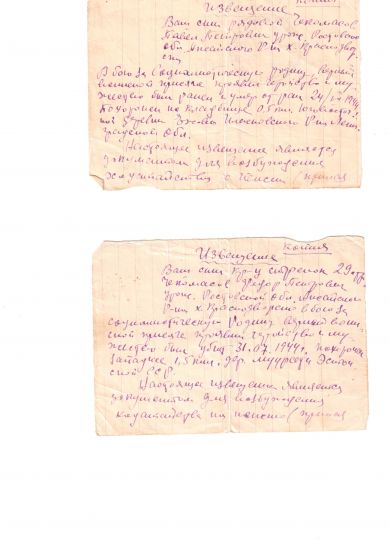 копия
Извещение
Ваш сын рядовой Чекомасов
Павел Петрович урож. Ростовской
обл. Аксайского р-на х. Краснодвор
ску
В бою за социалистическую родину, верный
воинской присяге проявив геройство и му
жество был ранен и умер от ран 24/
Похоронен на кладбище 0.5 км.
ной деревни р-на Ленин
градской обл.
Настоящее извещение является
документом для возбуждения
ходатайства о пенсии (приказ
копия
Извещение
Ваш сын кр-ц стрелок 29
Чекомасов Федор Петрович
урож. Ростовской обл. Аксайского
р-на х. Краснодворск в бою за
социалистическую родину верный воин
ской присяге проявив геройство и му
жество был убит 31.07.1944г. похоронен
западнее 1.5 км. дер. Эстон
ской ССР.
Настоящее извещение является
документом для возбуждения
ходатайства на пенсию (приказ